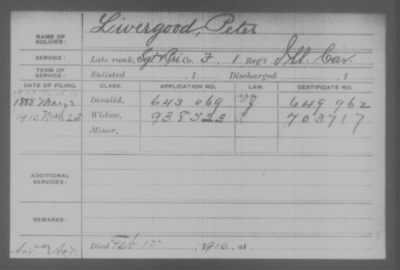 NAME OF SOLDIER: Livergood, Peter
SERVICE: Late rank, Sgt & Pri Co. F, 1 Reg't Ill. Cav.
TERM OF SERVICE: Enlisted , 1 Discharged , 1
DATE OF FILING. CLASS. APPLICATION NO. LAW. CERTIFICATE NO.
1888 Mar 2 Invalid, 643 069 649 962
1910 Mch 23 Widow, 938523 703717
Minor,
ADDITIONAL SERVICES:
REMARKS:
Died Feb 15, 1910, at